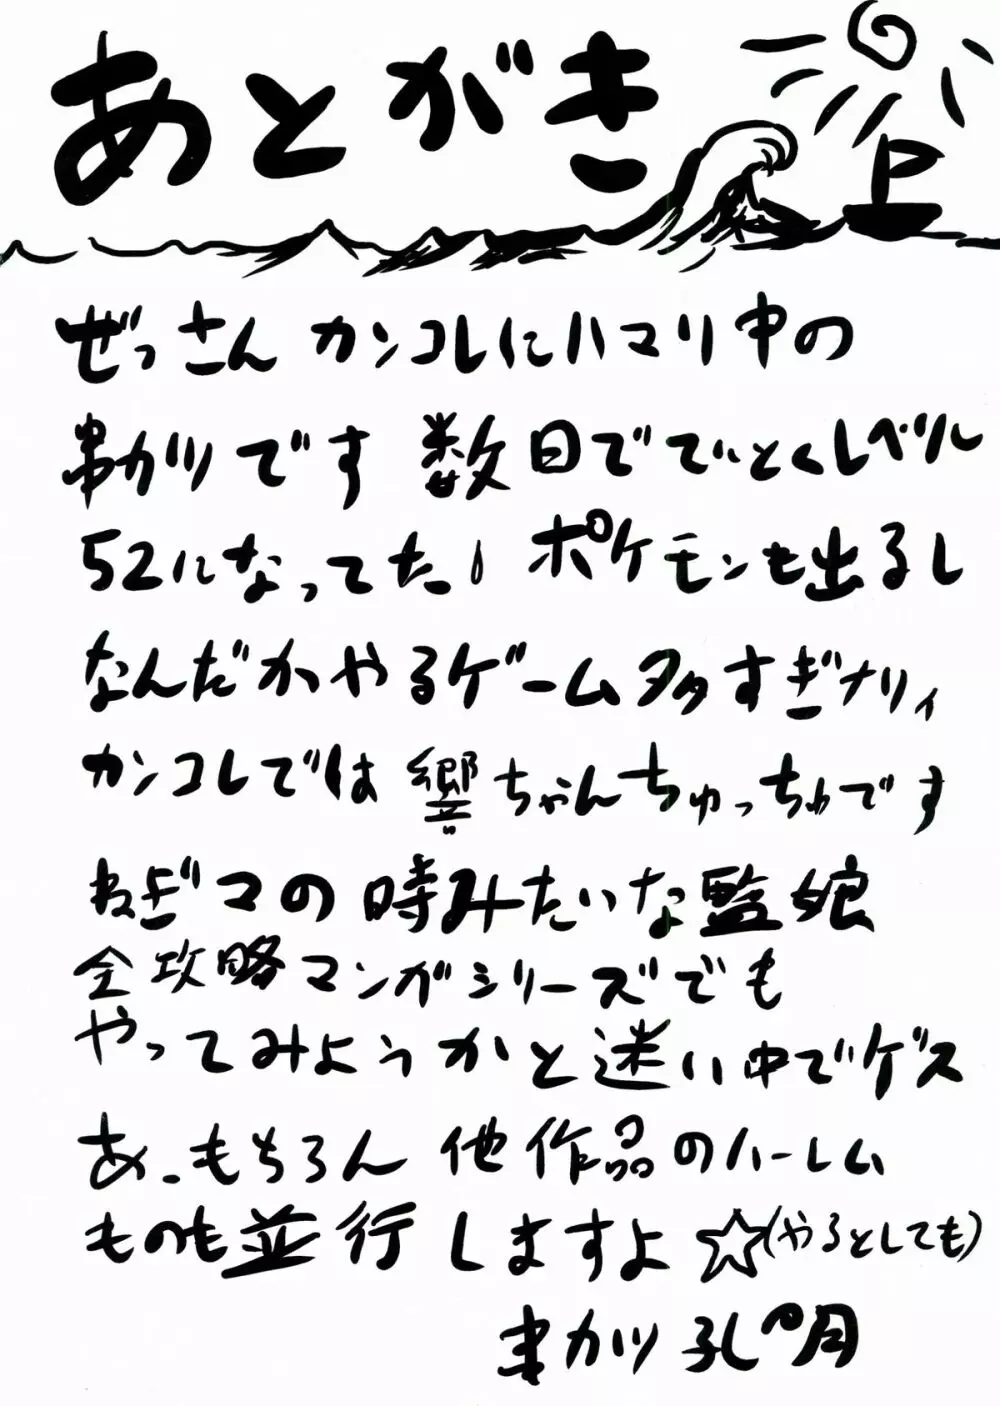 あとがき
ぜっさんカンコレにハマリ中の
串カツです 数日でていとくレベル
52になってた！ポケモンも出るし
なんだかやるゲーム多すぎナリィ
カンコレでは響ちゃんちゅっちゅです
ねぎマの時みたいな監娘
全攻略マンガシリーズでも
やってみようかと迷い中でゲス
あ、もちろん他作品のハーレム
ものも並行しますよ☆(やるとしても)
串カツ孔明